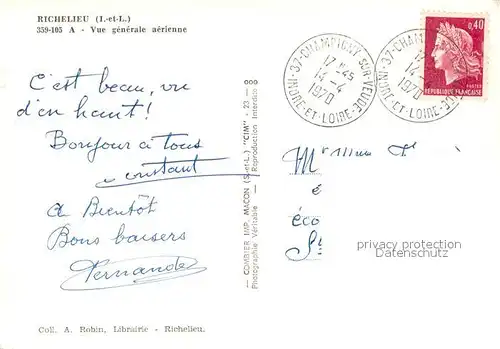 RICHELIEU (I.-et-L.)
359-105 A - Vue générale aérienne
C'est beau, vu
d'en haut !
Bonjour à tous
constant
à Bientôt
Bons baisers
Fernande
Coll. A. Robin, Librairie - Richelieu.
— COMBIER IMP. MACON (S.-et-L.) "CIM" - 23 - 00
Photographie Véritable - Reproduction Interdite
37-CHAMPIGNY-SUR-VEUDE
17H45
14-4
1970
INDRE-ET-LOIRE
37-CHAMPIGNY
17
14-4
1970
INDRE-ET-LOIRE
0,40
POSTES
REPUBLIQUE FRANÇAISE
Mr
é
éco
St
privacy protection
Datenschutz